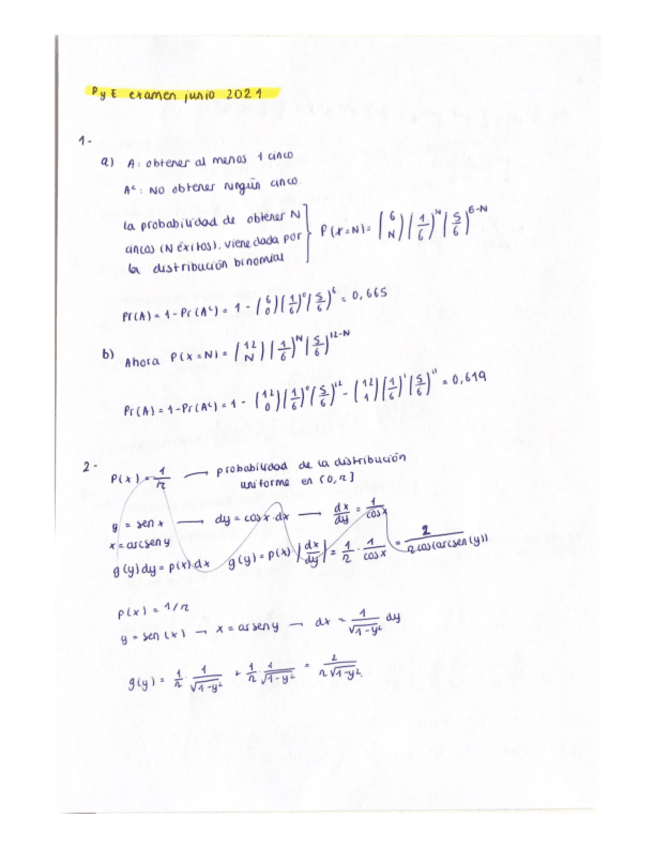 PyE examen junio 2021
1-
a) A: obtener al menos 1 cinco
Aᶜ: NO obtener ningún cinco.
la probabilidad de obtener N
cincos (N éxitos), viene dada por
la distribución binomial
P(x=N)= (6 N) (1/6)^N (5/6)^6-N
Pr(A) = 1-Pr(Aᶜ) = 1 - (6 0) (1/6)^0 (5/6)^6 = 0,665
b) Ahora P(x=N) = (12 N) (1/6)^N (5/6)^12-N
Pr(A) = 1-Pr(Aᶜ) = 1 - (12 0) (1/6)^0 (5/6)^12 - (12 1) (1/6)^1 (5/6)^11 = 0,619
2-
P(x) = 1/π → probabilidad de la distribución
uniforme en [0,π]
y = sen x → dy = cos x · dx → dx/dy = 1/cos x
x = arcsen y
g(y) dy = p(x) dx g(y) = p(x) |dx/dy| = 1/π · 1/cos x = 2/π cos(arcsen(y))
p(x) = 1/π
y = sen(x) → x = arsen y → dx = 1/√1-y² dy
g(y) = 1/π · 1/√1-y² + 1/π · 1/√1-y² = 2/π√1-y²